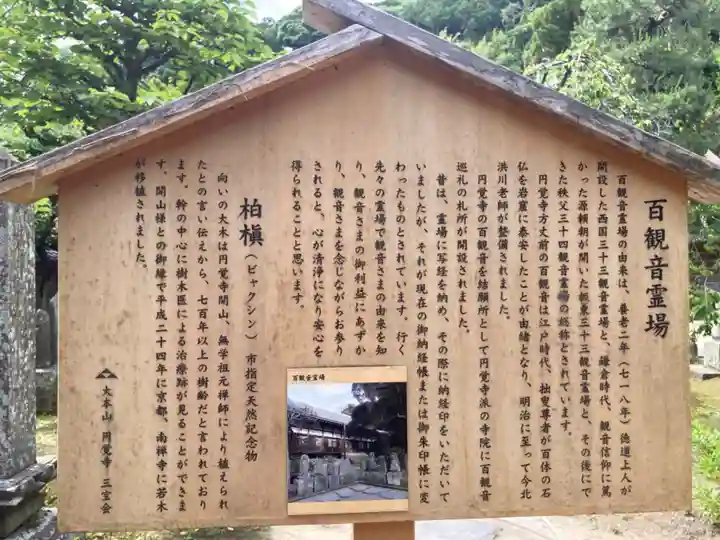 百観音霊場
百観音霊場の由来は、養老二年（七一八年）徳道上人が
開設した西国三十三観音霊場と、鎌倉時代、観音信仰に篤
かった源頼朝が開いた坂東三十三観音霊場と、その後にで
きた秩父三十四観音霊場の総称とされています。
円覚寺方丈前の百観音は江戸時代、拙叟尊者が百体の石
仏を岩窟に奉安したことが由緒となり、明治に至って今北
洪川老師が整備されました。
円覚寺の百観音を結願所として円覚寺派の寺院に百観音
巡礼の札所が開設されました。
昔は、霊場に写経を納め、その際に納経印をいただいて
いましたが、それが現在の御納経帳または御朱印帳に変
わったものとされています。行く
先々の霊場で観音さまの由来を知
り、観音さまの御利益にあずか
り、観音さまを念じながらお参り
されると、心が清浄になり安心を
得られることと思います。
柏槇（ビャクシン）市指定天然記念物
向いの大木は円覚寺開山、無学祖元禅師により植えられ
たとの言い伝えから、七百年以上の樹齢だと言われており
ます。幹の中心に樹木医による治療跡が見ることができま
す。開山様との御縁で平成二十四年に京都、南禅寺に若木
が移植されました。
大本山 円覚寺 三宝会
百観音霊場